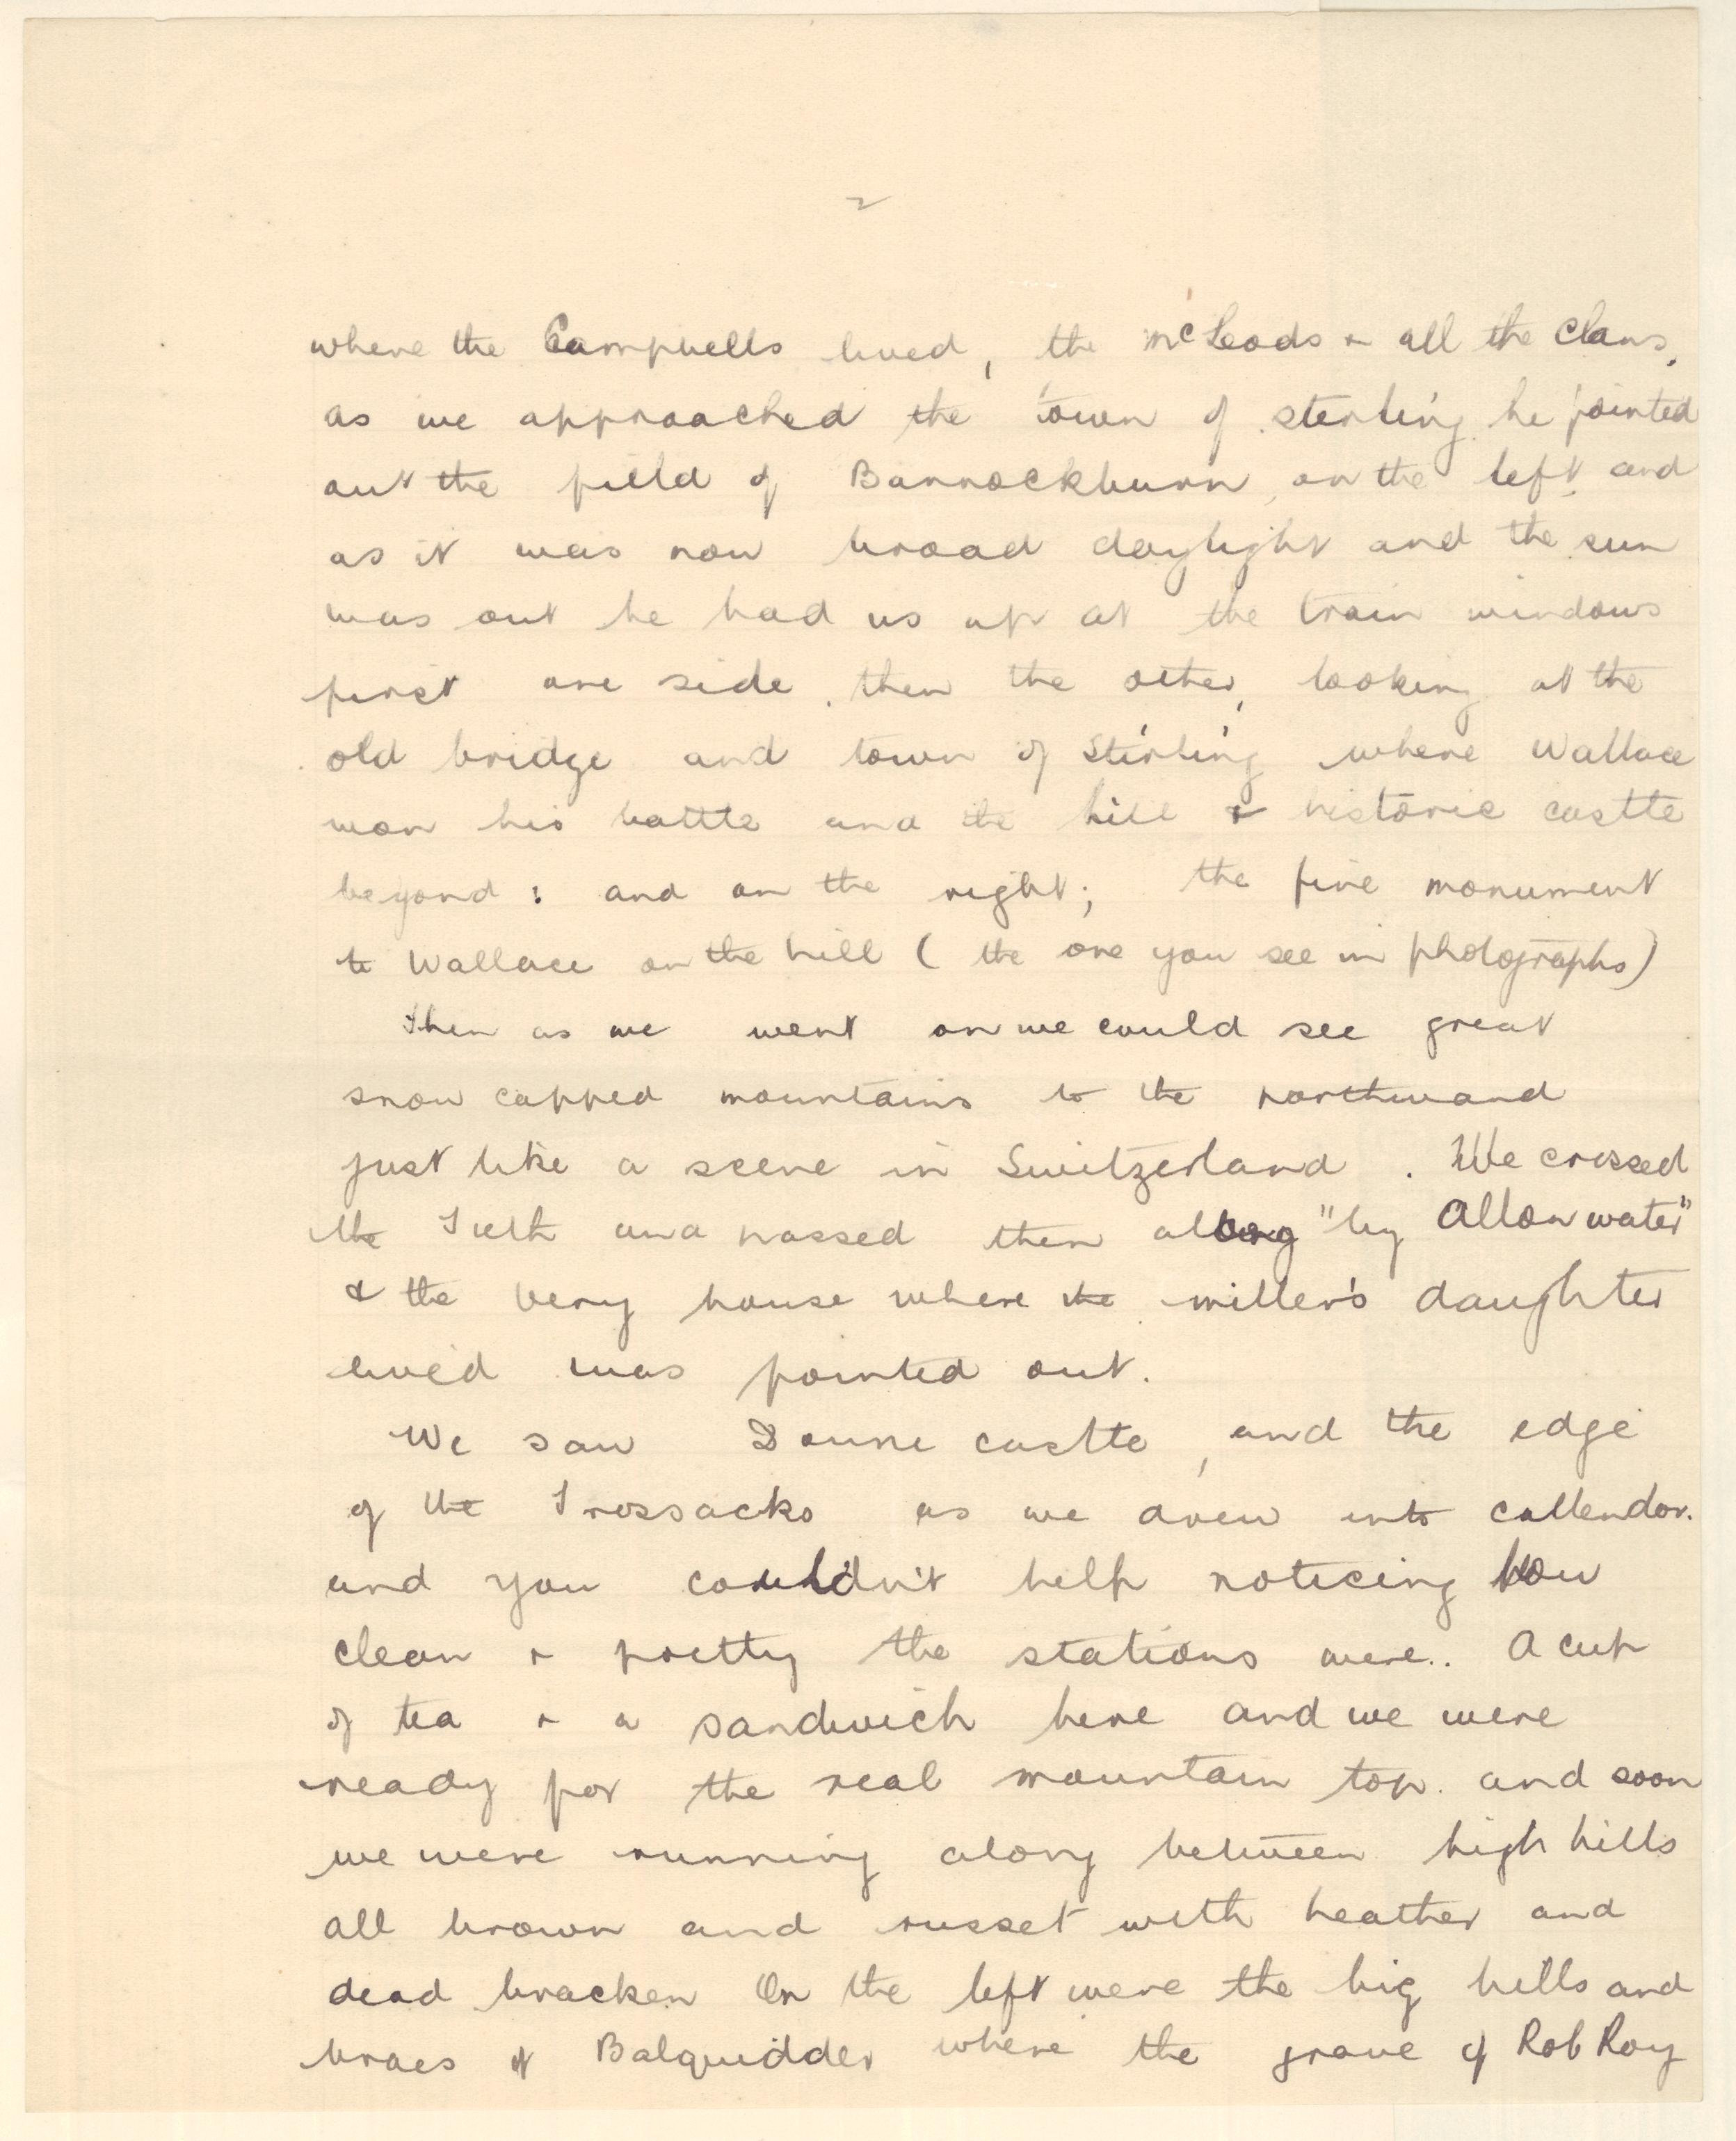 2
where the Campbells lived, the McLeods & all the clans,
as we approached the town of sterling he pointed
out the field of Bannockburn, on the left, and
as it was now broad daylight and the sun
was out he had us up at the train windows
first one side, then the other, looking at the
old bridge and town of Stirling where Wallace
won his battle and the hill & historic castle
beyond: and on the right; the fine monument
to Wallace on the hill (the one you see in photographs)
Then as we went on we could see great
snow capped mountains to the northward
just like a scene in Switzerland. We crossed
the Teith and passed then along "by Allan water"
& the very house where the miller's daughter
lived was pointed out.
We saw Doune castle, and the edge
of the Trossacks as we drew into callendor.
and you couldn't help noticing how
clean & pretty the stations were.. A cup
of tea & a sandwich here and we were
ready for the real mountain top. and soon
we were running along between high hills
all brown and russet with heather and
dead bracken On the left were the big hills and
braes of Balquidder where the grave of Rob Roy